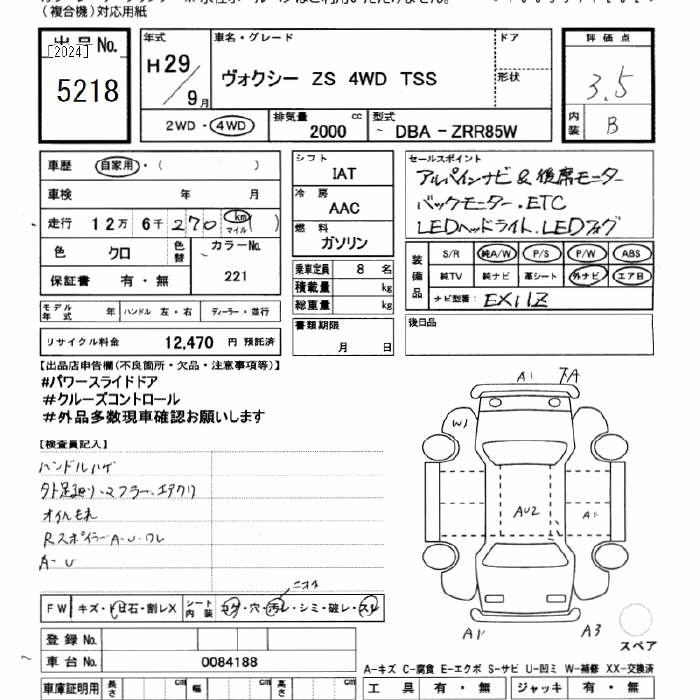 （複合機）対応用紙
出品No.
[2024]
5218
年式
H29/9月
車名・グレード
ヴォクシー ZS 4WD TSS
ドア
形状
評価点
3.5
内装
B
2WD・4WD
排気量
2000 cc
型式
DBA－ZRR85W
車歴 自家用・（ ）
車検 年 月
走行 12万 6千 270 km（ ）
マイル
色 クロ
色替
カラーNo.
221
保証書 有・無
モデル年式 年 ハンドル 左・右 ディーラー・並行
リサイクル料金 12,470 円 預託済
シフト
IAT
冷房
AAC
燃料
ガソリン
乗車定員 8 名
積載量 kg
総重量 kg
書類期限
月 日
セールスポイント
アルパインナビ & 後席モニター
バックモニター・ETC
LEDヘッドライト、LEDフォグ
装備品
S/R 純A/W P/S P/W ABS
純TV 純ナビ 革シート 外ナビ エアB
ナビ型番: EX11Z
後日品
【出品店申告欄(不良箇所・欠品・注意事項等)】
#パワースライドドア
#クルーズコントロール
#外品多数現車確認お願いします
【検査員記入】
ハンドルハゲ
タト足廻り・マフラー・エアクリ
オイルもれ
Rスポイラー A-U・ワレ
A-U
FW キズ・ト石・割レX
シート内装
コゲ・穴・汚レ・シミ・破レ・スレ
ニオイ
登録 No.
車台 No. 0084188
車庫証明用 長さ cm 幅 cm 高さ cm
A1
7A
W1
AU2
A1
A1
A3
スペア
A－キズ C－腐食 E－エクボ S－サビ U－凹ミ W－補修 XX－交換済
工具 有・無 ジャッキ 有・無